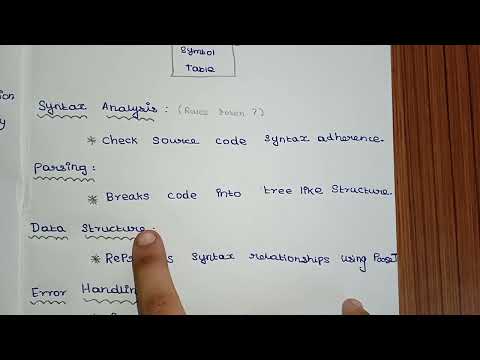 Symbol
Table
Syntax Analysis : (Rules
* Check source code syntax adherence.
Parsing :
* Breaks code into tree like structure.
Data Structure :
* syntax relationships using
Error